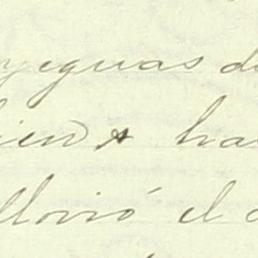 yeguas d
ien & ha
llovió el